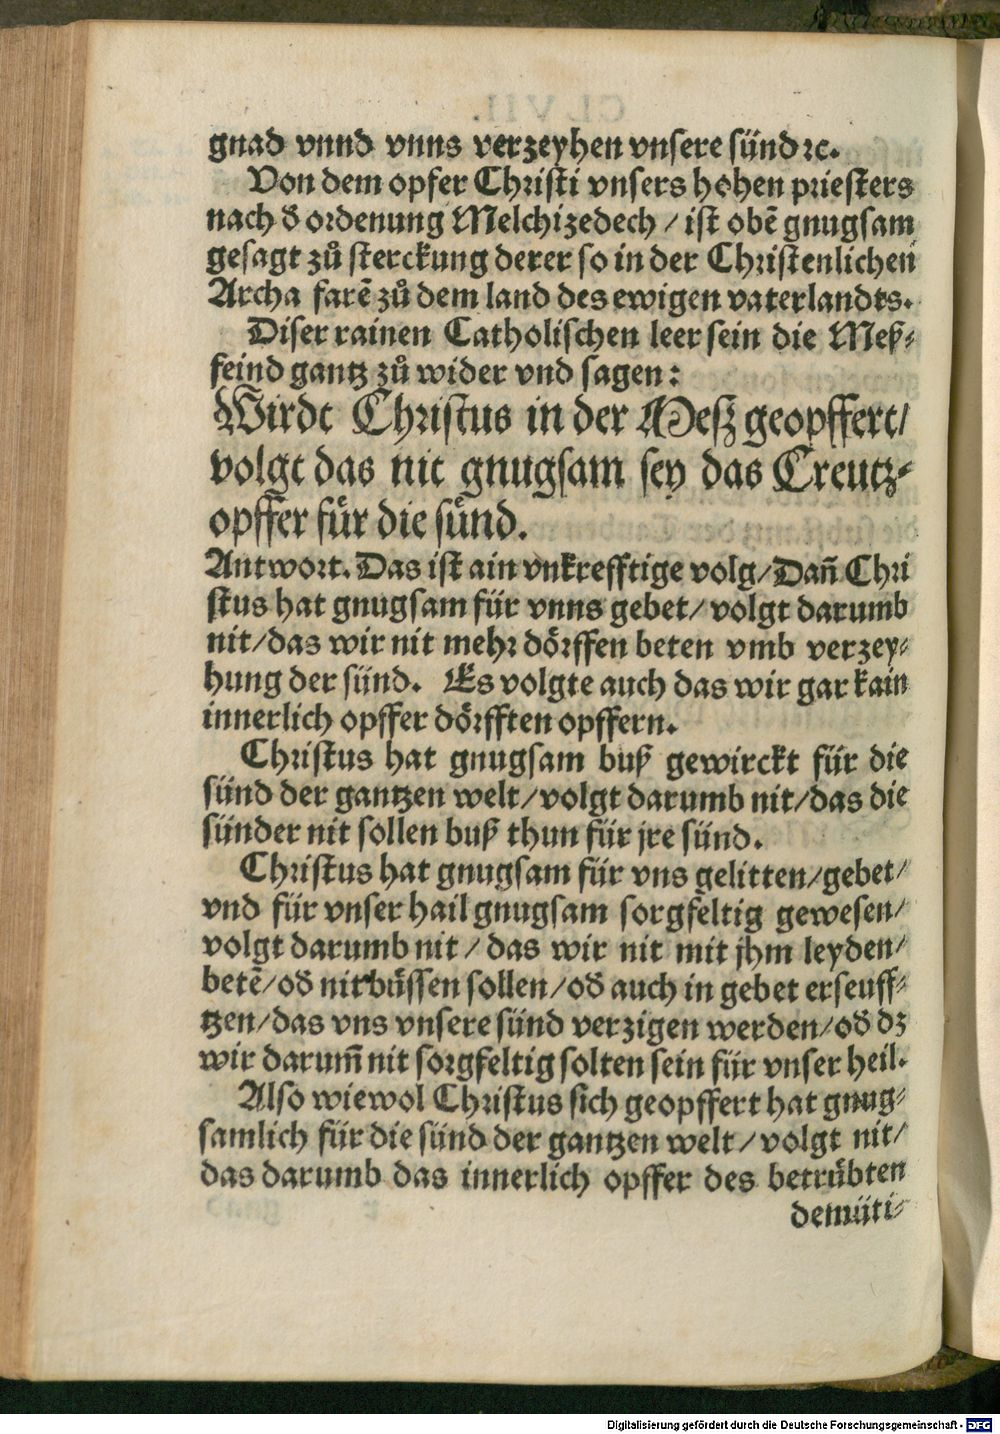 gnad vnnd vnns verzeyhen vnsere sünd ꝛc.
Von dem opfer Christi vnsers hohen priesters
nach d ordenung Melchizedech / ist obẽ gnugsam
gesagt zů sterckung derer so in der Christenlichen
Archa farẽ zů dem land des ewigen vaterlandts.
Diser rainen Catholischen leer sein die Meß-
feind gantz zů wider vnd sagen:
Wirdt Christus in der Mesz geopffert/
volgt das nit gnugsam sey das Creutz-
opffer für die sünd.
Antwort. Das ist ain vnkrefftige volg/Dañ Chri
stus hat gnugsam für vnns gebet/ volgt darumb
nit/das wir nit mehr dörffen beten vmb verzey-
hung der sünd. Es volgte auch das wir gar kain
innerlich opffer dörfften opffern.
Christus hat gnugsam buß gewirckt für die
sünd der gantzen welt/volgt darumb nit/das die
sünder nit sollen buß thun für jre sünd.
Christus hat gnugsam für vns gelitten/gebet/
vnd für vnser hail gnugsam sorgfeltig gewesen/
volgt darumb nit / das wir nit mit jhm leyden/
betẽ/od nit büssen sollen/od auch in gebet erseuff-
tzen/das vns vnsere sünd verzigen werden/od dz
wir darum̃ nit sorgfeltig solten sein für vnser heil.
Also wiewol Christus sich geopffert hat gnug-
samlich für die sünd der gantzen welt/ volgt nit/
das darumb das innerlich opffer des betrübten
demüti-
Digitalisierung gefördert durch die Deutsche Forschungsgemeinschaft - DFG